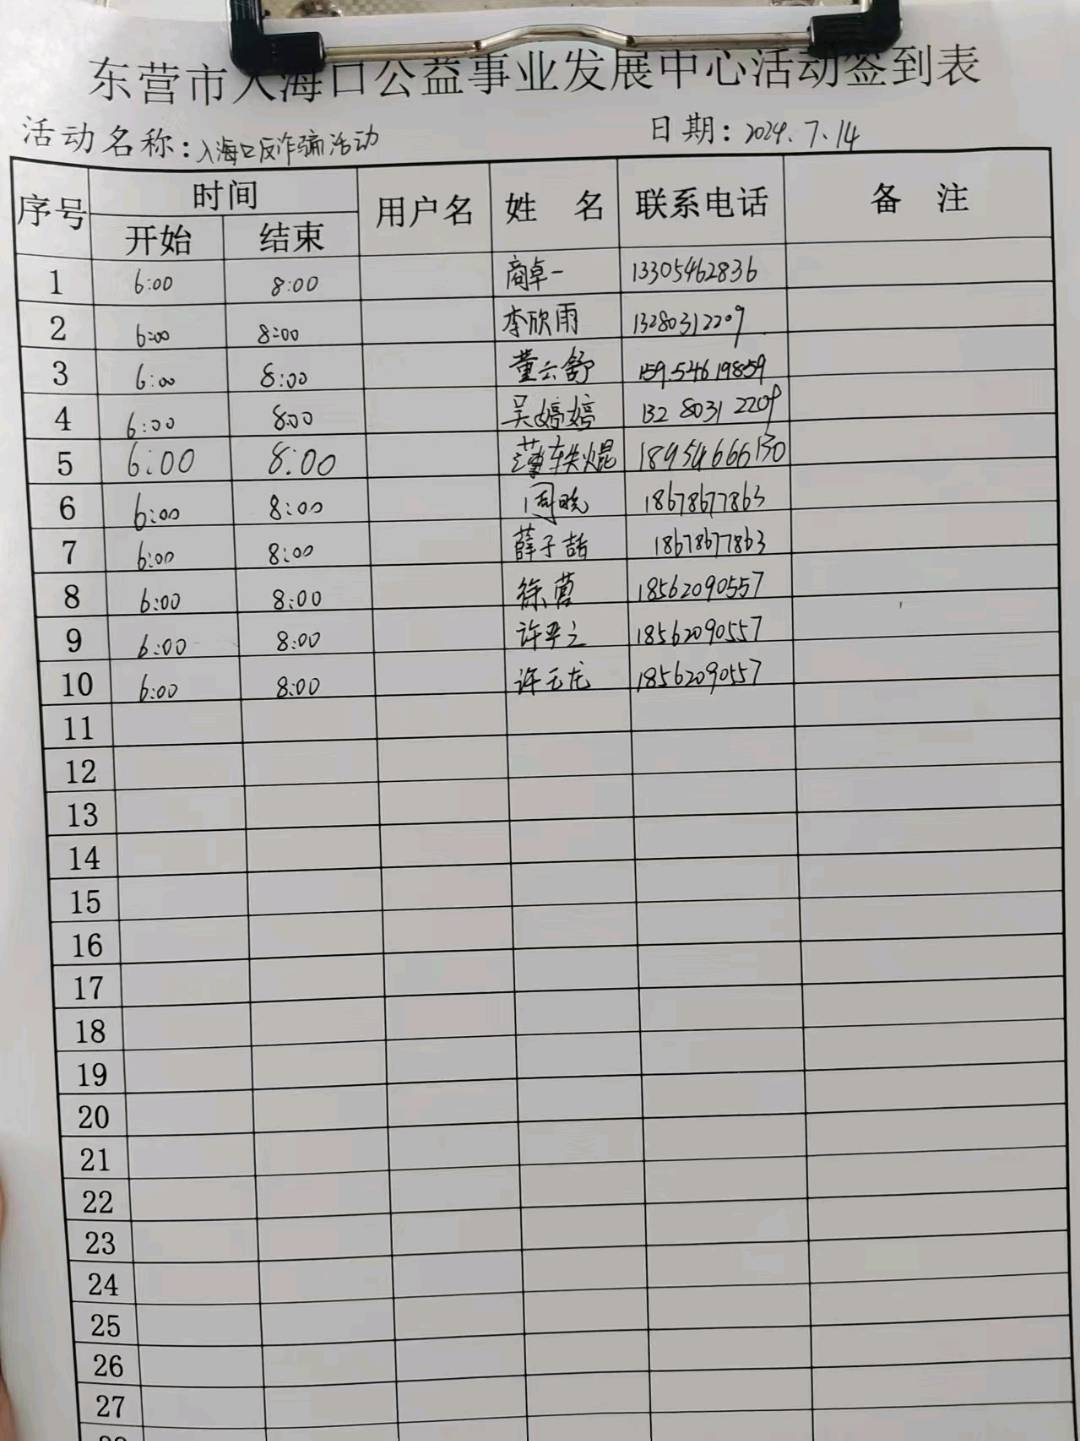 东营市入海口公益事业发展中心活动签到表
活动名称：入海口反诈骗活动 日期：2024.7.14
序号 时间 用户名 姓 名 联系电话 备 注
开始 结束
1 6:00 8:00 商卓一 13305462836
2 6:00 8:00 李欣雨 13280312209
3 6:00 8:00 董云舒 15954619859
4 6:00 8:00 吴婷婷 13280312209
5 6:00 8:00 18954666130
6 6:00 8:00 周晓 18678677863
7 6:00 8:00 薛子喆 18678677863
8 6:00 8:00 徐营 18562090557
9 6:00 8:00 许平之 18562090557
10 6:00 8:00 许玉龙 18562090557
11
12
13
14
15
16
17
18
19
20
21
22
23
24
25
26
27